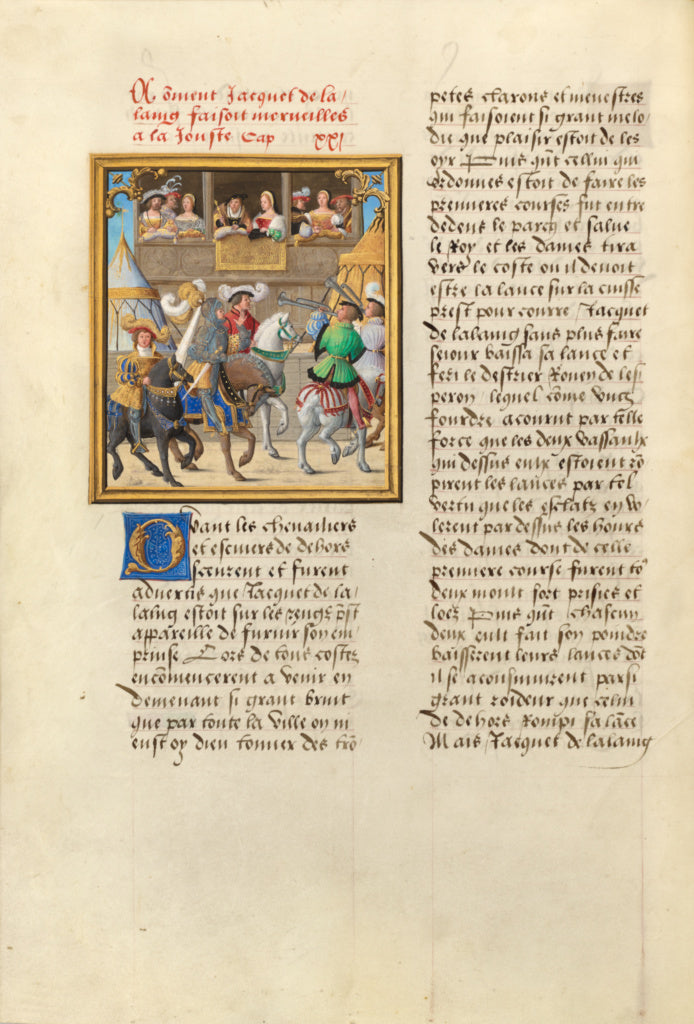 Coment Jacquet de la
laing faisoit merveilles
a la Jouste Cap xxi
Quant les chevailiers
et escuiers de dehors
sceurent et furent
advertis que Jacquet de la
laing estoit sur les rengz p̃st
appareille de furnir son em
prinse Lors de tous costez
encõmencerent a venir en
demenant si grant bruit
que par toute la ville on n
eust oy dieu tonner des trõ
petes clarons et menestres
qui faisoient si grant melo
die que plaisir estoit de les
oyr Puis qñt cellui qui
ordonnes estoit de faire les
premieres courses fut entre
dedens le parcq et salue
le Roy et les dames tira
vers le coste ou il devoit
estre la lance sur la cuisse
prest pour courre Jacquet
de lalaing sans plus faire
seiour baissa sa lance et
feri le destrier Rouen de les
peron lequel cõme ung
fourdre acourut par telle
force que les deux vassaulx
qui dessus eulx estoient rõ
pirent les lances par tel
vertu que les esclatz en vo
lerent par dessus les hours
des dames dont de celle
premiere course furent to9
deux moult fort prisies et
loez Puis qñt chascun
deulx eult fait son poindre
baisserent leurs lances dõt
il se aconsuiuirent par si
grant roideur que celui
de dehors Rompi sa lãce
Mais Jacquet de lalaing